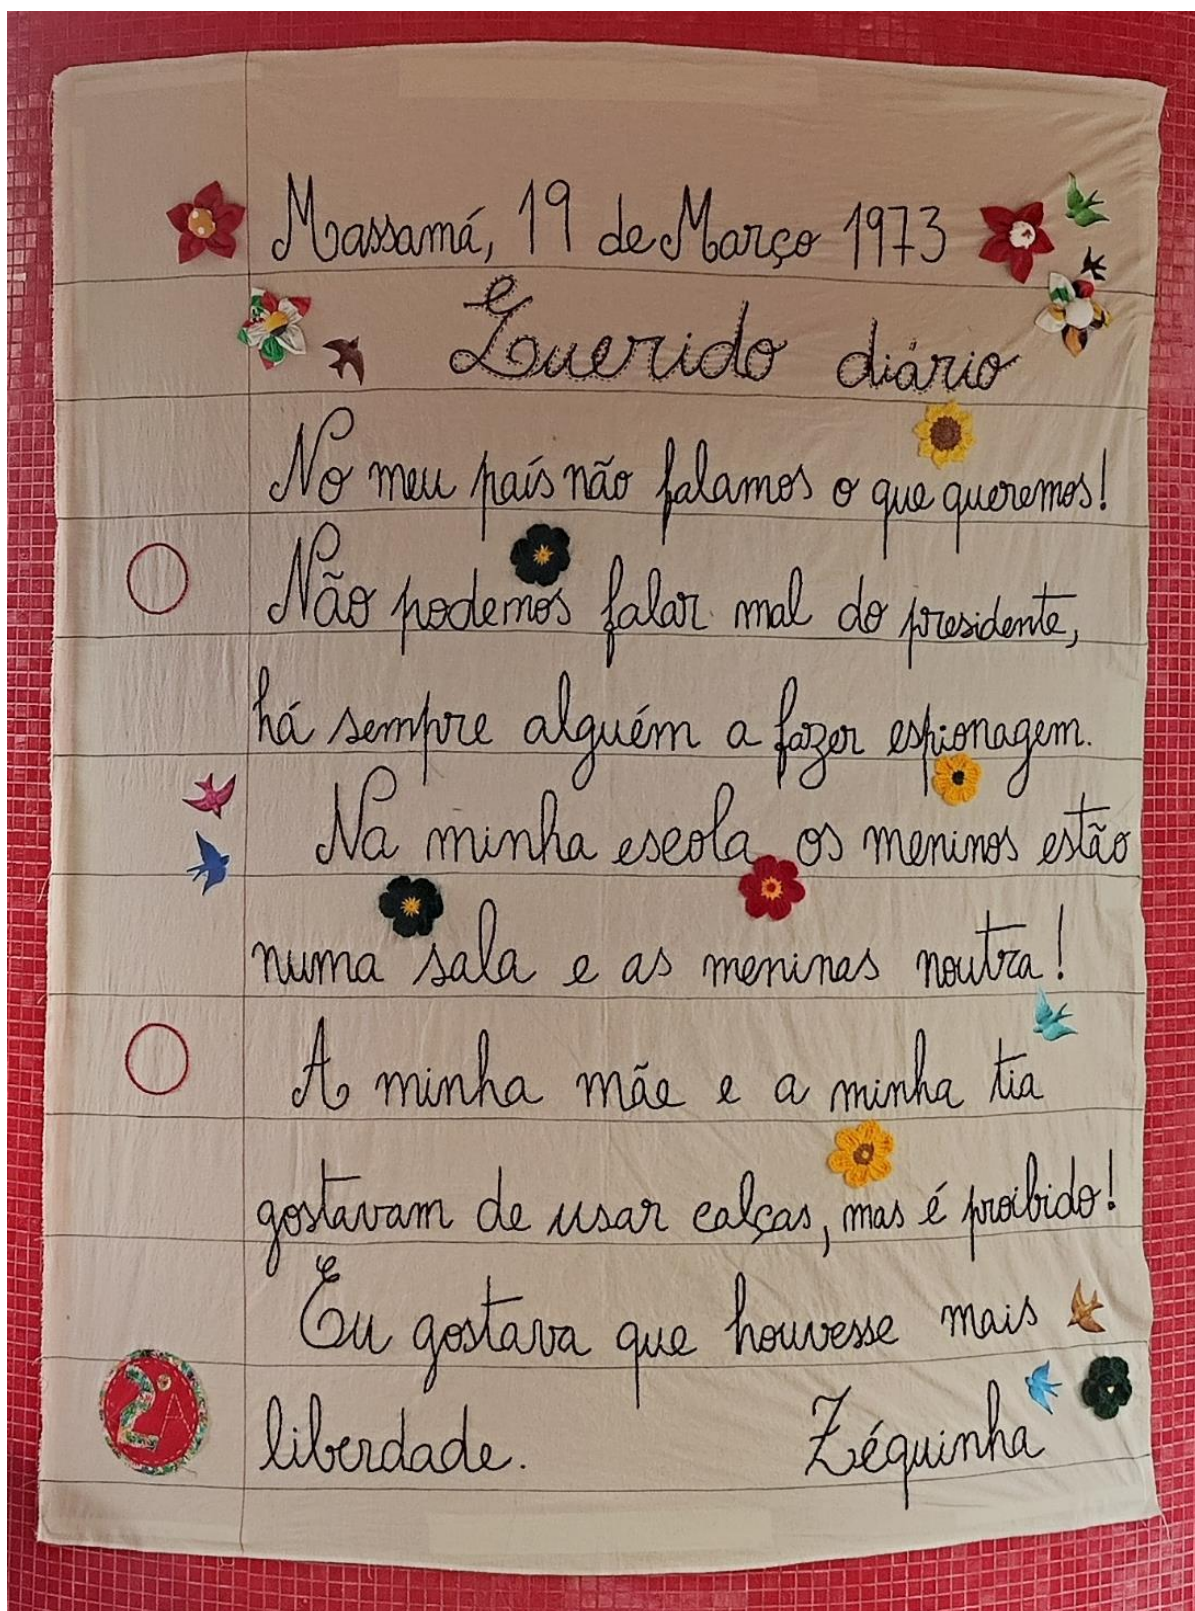 Massamá, 19 de Março 1973
Querido diário
No meu país não falamos o que queremos!
Não podemos falar mal do presidente,
há sempre alguém a fazer espionagem.
Na minha escola os meninos estão
numa sala e as meninas noutra!
A minha mãe e a minha tia
gostavam de usar calças, mas é proibido!
Eu gostava que houvesse mais
liberdade. Zéquinha
2º A